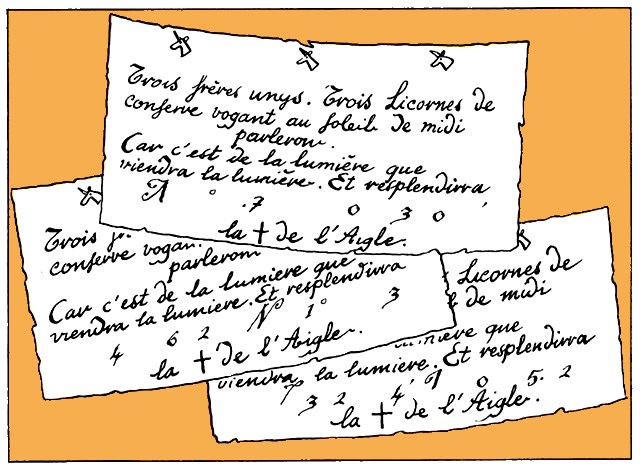 Trois frères unys. Trois Licornes de
conserve vogant au soleil de midi
parleront.
Car c'est de la lumière que
viendra la lumière. Et resplendirra
° .7 0 3 0 '
la ✝ de l'Aigle.
Trois
conserve
parleront
Car c'est de la lumiere que
viendra la lumiere. Et resplendirra
4 6 2 N 1° 3
la ✝ de l'Aigle.
Licornes de
de midi
que
viendra la lumiere. Et resplendirra
3 2 4' 0 5. 2
la ✝ de l'Aigle.